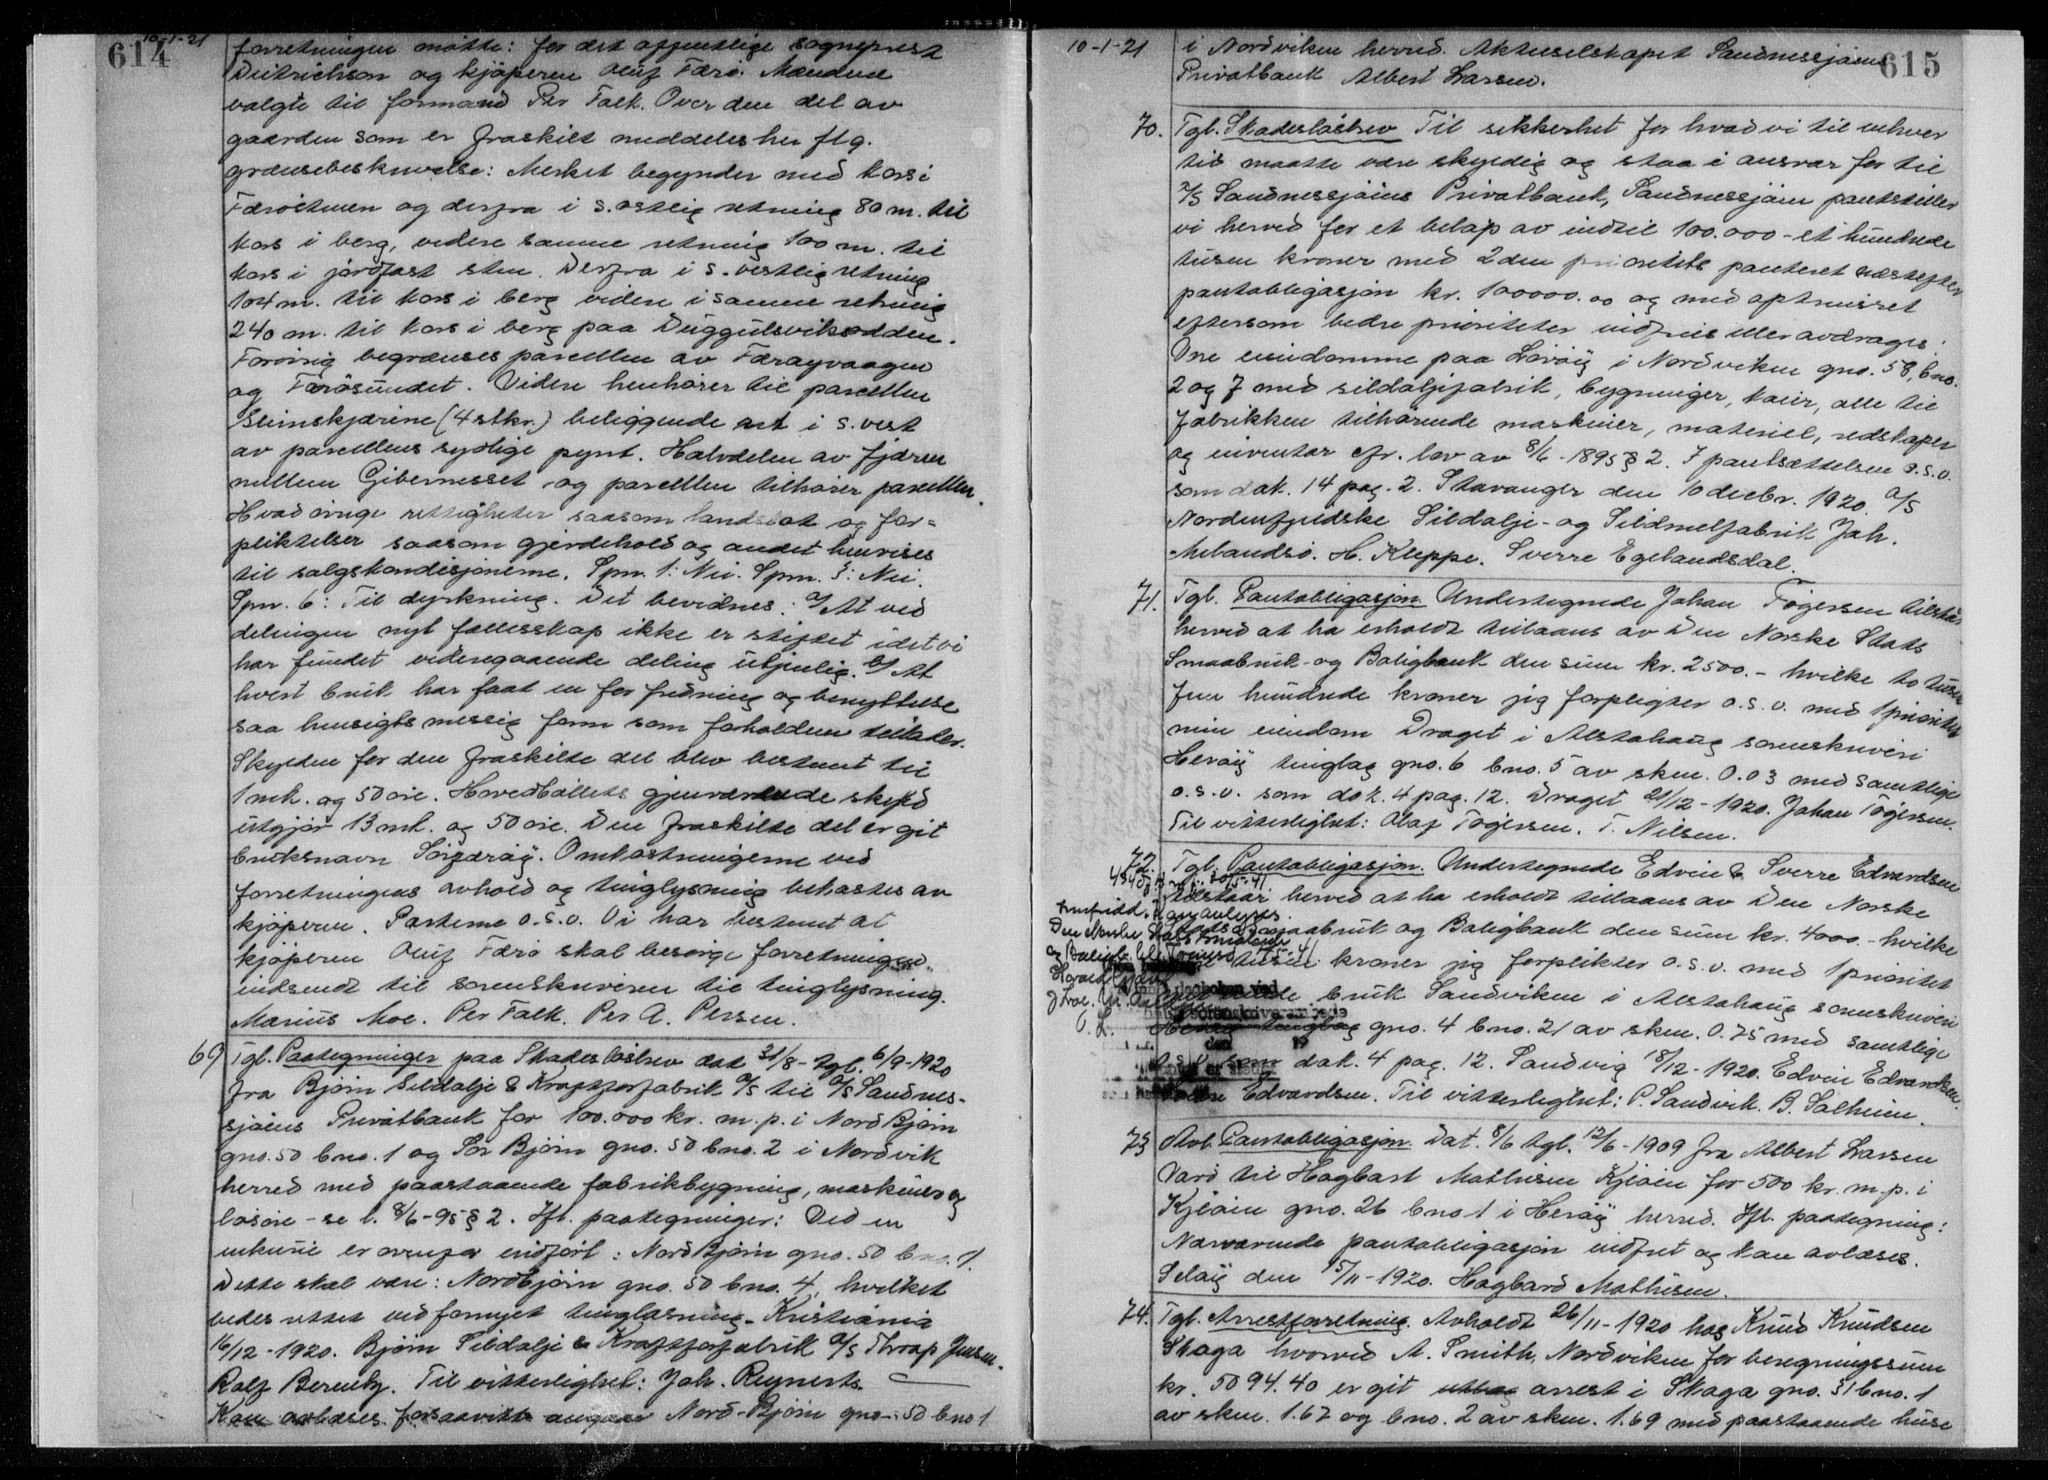 614
10-1-21
forretningen møtte: for det offentlige sogneprest
Dietrichson og kjøperen Oluf Færø. Mændene
valgte til formand Per Falk. Over den del av
gaarden som er fraskilt meddeles her flg.
grænsebeskrivelse: Merket begynder med kors i
og derfra i s.østlig retning 80 m. til
kors i berg, videre samme retning 100 m. til
kors i jordfast sten. Derfra i s.vestlig retning
104 m. til kors i berg videre i samme retning
240 m. til kors i berg paa Duggulsviksodden.
Forøvrig begrænses parcellen av Færøyvaagen
og Færøsundet. Videre henhører til parcellen
(4 stkr.) beliggende ret i s.vest
av parcellens sydlige pynt. Halvdelen av fjæren
mellem Gibernesset og parcellen tilhører parcellen.
Hvad øvrige rettigheter saasom landslot og for=
pliktelser saasom gjerdehold og andet henvises
til salgskondisjonerne. Spm. 1: Nei. Spm. 3: Nei.
Spm. 6: Til dyrkning. Det bevidnes: a/ At ved
delingen nyt fællesskap ikke er stiftet idet vi
har fundet videregaaende deling utjenlig. b/ At
hvert bruk har faat en for fredning og benyttelse
saa hensigtsmessig form som forholdene tillater.
Skylden for den fraskilte del blev bestemt til
1 mk. og 50 øre. Hovedbøllets gjenværende skyld
utgjør 13 mk. og 50 øre. Den fraskilte del er git
bruksnavn Sørfærøy. Omkostningerne ved
forretningens avhold og tinglysning bekostes av
kjøperen. Parterne o.s.v. Vi har bestemt at
kjøperen Oluf Færø skal besørge forretningen
indsendt til sorenskriveren til tinglysning.
Marius Moe. Per Falk. Per A. Persen.
69 Tgl. Paategninger paa Skadesløsbrev dat 31/8 - tgl. 6/9-1920
fra Bjørn Sildolje & Kraftforfabrik A/S til A/S Sandnes-
sjøens Privatbank for 100.000 kr. m. p. i Nord Bjørn
gno. 50 bno. 1 og Sør Bjørn gno. 50 bno. 2 i Nordvik
herred med paastaaende fabrikbygning, maskiner og
løsøre - se l. 8/6-95 § 2. Hfl. paategninger: Ved en
inkurie er ovenfor indført: Nord Bjørn gno. 50 bno. 1.
Dette skal være: Nordbjørn gno. 50 bno. 4, hvilket
bedes rettet ved fornyet tinglæsning. Kristiania
16/12 - 1920. Bjørn Sildolje & Kraftforfabrik A/S Throap Jensen.
Rolf Berentz. Til vitterlighet: Joh. Reynerts.
Kan avlæses forsaavidt angaar Nord-Bjørn gno. 50 bno 1
615
10-1-21
i Nordviken herred. Aktieselskapet Sandnessjøens
Privatbank Albert Larsen.
70. Tgl. Skadesløsbrev Til sikkerhet for hvad vi til enhver
tid maatte være skyldig og staa i ansvar for til
A/S Sandnessjøens Privatbank, Sandnessjøen pantstiller
vi herved for et beløp av indtil 100.000 - et hundrede
tusen kroner med 2den prioritets panteret næstefter
pantobligasjon kr. 100000.00 og med optrinsret
eftersom bedre prioriteter indfries eller avdrages:
Vore eiendomme paa Løvøy i Nordviken gno. 58, bno.
2 og 7 med sildoljefabrik, bygninger, kaier, alle til
fabrikken tilhørende maskiner, materiel, redskaper
og inventar cfr. lov av 8/6-1895 § 2. I pantsættelsen o.s.v.
som dok. 14 pag. 2. Stavanger den 10 decbr. 1920. A/S
Nordenfjeldske Sildolje- og Sildmelfabrik Joh.
Melandsø. H. Kleppe. Sverre Egelandsdal.
71. Tgl. Pantobligasjon Undertegnede Johan Tøgersen tilstaar
herved at ha erholdt tillaans av Den Norske Stats
Smaabruk- og Boligbank den sum kr. 2500.- hvilke to tusen
fem hundrede kroner jeg forpligter o.s.v. med 1 prioritet
min eiendom Draget i Alstahaug sorenskriveri
Herøy tinglag gno. 6 bno. 5 av skm. 0.03 med samtlige
o.s.v. som dok. 4 pag. 12. Draget 21/12-1920. Johan Tøgersen.
Til vitterlighet: Olaf Tøgersen. T. Nilsen.
72. Tgl. Pantobligasjon. Undertegnede Edvin & Sverre Edvardsen
tilstaar herved at ha erholdt tillaans av Den Norske
Stats Smaabruk og Boligbank den sum kr. 4000.- hvilke
tusen kroner jeg forplikter o.s.v. med 1 prioritet
bruk Sandviken i Alstahaug sorenskriveri
Herøy tinglag gno. 4 bno. 21 av skm. 0.75 med samtlige
o.s.v. som dok. 4 pag. 12. Sandvig 18/12-1920. Edvin Edvardsen.
Sverre Edvardsen. Til vitterlighet: P. Sandvik. B. Solheim.
73 Avl. Pantobligasjon. Dat. 8/6 tgl. 12/6-1909 fra Albert Larsen
Vard til Hagbart Mathisen Kjeøen for 500 kr. m.p. i
Kjeøen gno. 26 bno 1 i Herøy herred. Hfl. paategning:
Nærværende pantobligasjon indfriet og kan avlæses.
Seløy den 15/11-1920. Hagbard Mathisen.
74. Tgl. Arrestforretning. Avholdt 26/11-1920 hos Knud Knudsen
Skaga hvorved A. Smith, Nordviken for beregningssum
kr. 5094.40 er git utlæg arrest i Skaga gno. 31 bno. 1
av skm. 1.67 og bno. 2 av skm. 1.69 med paastaaende huse